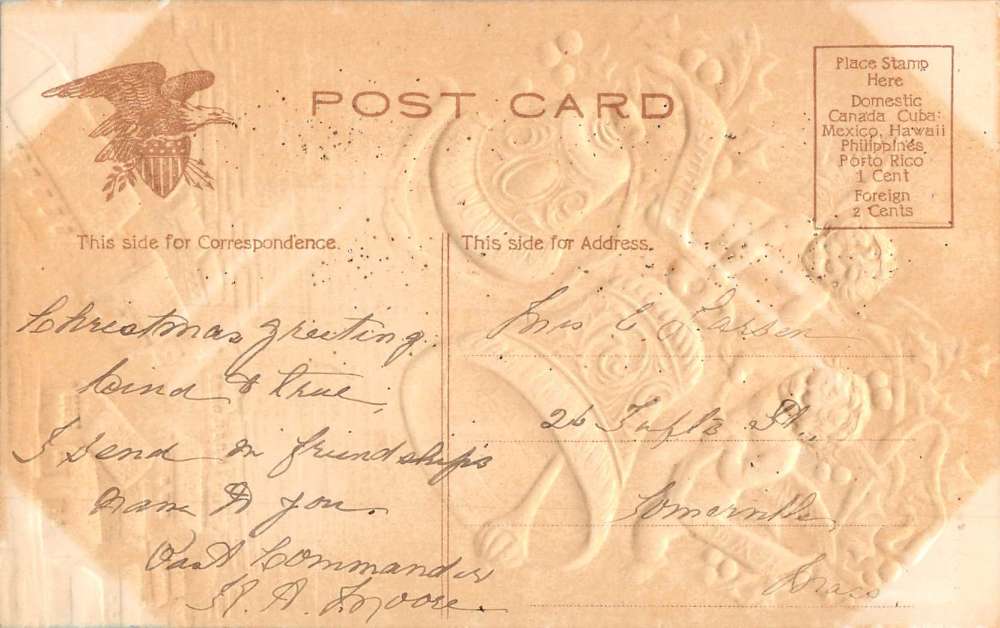 POST CARD
Place Stamp
Here
Domestic
Canada Cuba
Mexico, Hawaii
Philippines
Porto Rico
1 Cent
Foreign
2 Cents
This side for Correspondence.
This side for Address.
Christmas greeting
kind & true,
I send in friendships
name to you.
Past Commander
R. A. Moore
Mrs C Larsen
26 Tufts St.
Somerville
Mass.